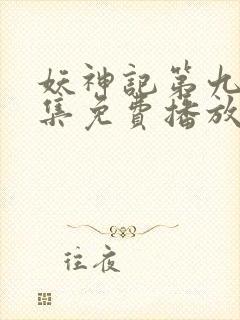 妖神記第九
集免費播放
往夜